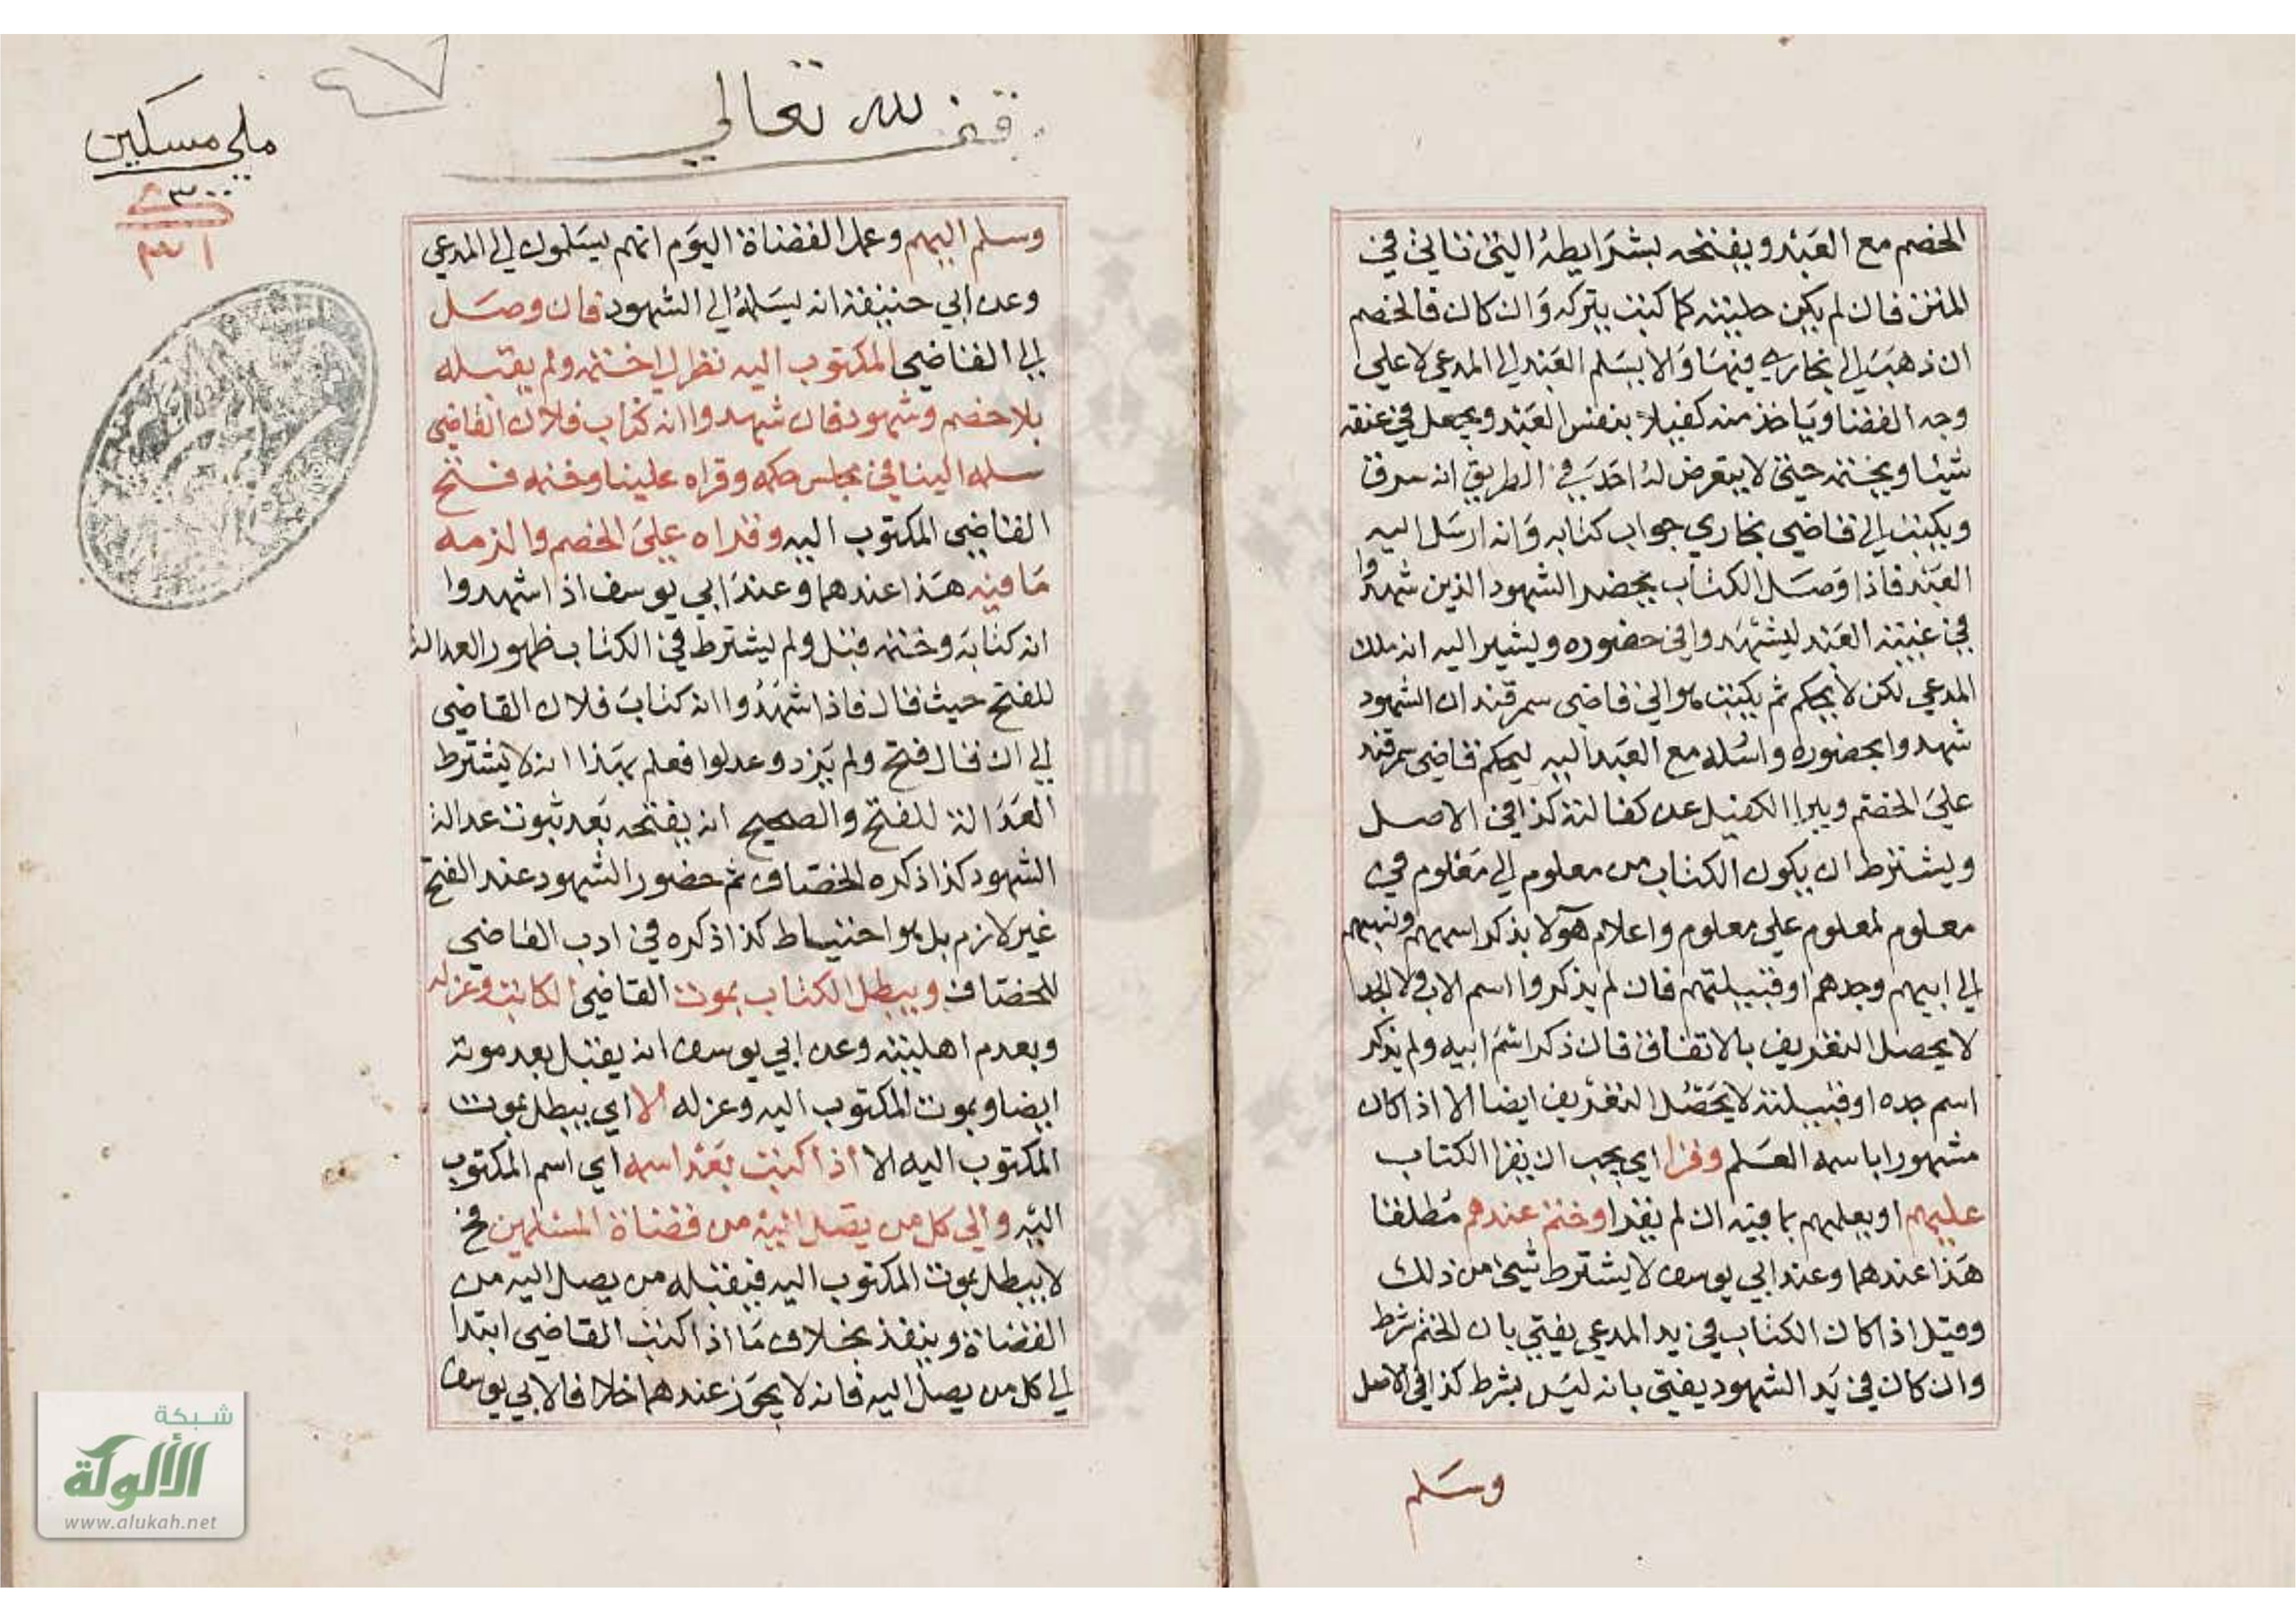 الخصم مع العبد ويفتحه بشرايطه التي تاتي في
المتن فان لم يكن حليته كما كتب يتركه وان كان فالخصم
ان ذهب الي بخاري فيها والا يسلم العبد الي المدعي لا علي
وجه القضا وياخذ منه كفيلا بنفس العبد ويجعل في عنقه
شيئا ويختمه حتي لا يتعرض له احد في الطريق انه سرق
ويكتب الي قاضي بخاري جواب كتابه وانه ارسل اليه
العبد فاذا وصل الكتاب يحضر الشهود الذين شهدوا
في غيبته العبد ليشهدوا في حضوره ويشير اليه انه ملك
المدعي لكن لا يحكم ثم يكتب هو الي قاضي سمرقند ان الشهود
شهدوا بحضوره وارسله مع العبد اليه ليحكم قاضي سمرقند
علي الخصم ويبرا الكفيل عن كفالته كذا في الاصل
ويشترط ان يكون الكتاب من معلوم الي معلوم في
معلوم لمعلوم علي معلوم واعلام هولا بذكر اسمهم ونسبهم
الي ابيهم وجدهم او قبيلتهم فان لم يذكروا اسم الاب ولا الجد
لا يحصل التعريف بالاتفاق فان ذكر اسم ابيه ولم يذكر
اسم جده او قبيلته لا يحصل التعريف ايضا الا اذا كان
مشهورا باسمه العلم وقرا اي يجب ان يقرا الكتاب
عليهم او يعلمهم بما فيه ان لم يقرا وختم عندهم مطلقا
هذا عندهما وعند ابي يوسف لا يشترط شيء من ذلك
وقيل اذا كان الكتاب في يد المدعي يفتي بان الختم شرط
وان كان في يد الشهود يفتي بانه ليس بشرط كذا في الاصل
وسلم
وقف لله تعالي
ملي مسكين
٣٠٠
وسلم اليهم وعمل القضاة اليوم انهم يسلمون الي المدعي
وعن ابي حنيفة انه يسلمه الي الشهود فان وصل
الي القاضي المكتوب اليه نظر الي ختمه ولم يقبله
بلا خصم وشهود فان شهدوا انه كتاب فلان القاضي
سلمه الينا في مجلس حكمه وقراه علينا وختمه فتح
القاضي المكتوب اليه وقراه علي الخصم والزمه
ما فيه هذا عندهما وعند ابي يوسف اذا شهدوا
انه كتابه وختمه قبل ولم يشترط في الكتاب ظهور العدالة
للفتح حيث قال فاذا شهدوا انه كتاب فلان القاضي
الي ان قال فتح ولم يزد وعدلوا فعلم بهذا انه لا يشترط
العدالة للفتح والصحيح انه يفتحه بعد ثبوت عدالة
الشهود كذا ذكره الخصاف ثم حضور الشهود عند الفتح
غير لازم بل هو احتياط كذا ذكره في ادب القاضي
للخصاف ويبطل الكتاب بموت القاضي الكاتب وعزله
وبعدم اهليته وعن ابي يوسف انه يقبل بعد موته
ايضا وبموت المكتوب اليه وعزله الا اي يبطل بموت
المكتوب اليه الا اذا كتب بعد اسمه اي اسم المكتوب
اليه والي كل من يصل اليه من قضاة المسلمين فح
لا يبطل بموت المكتوب اليه فيقبله من يصل اليه من
القضاة وينفذ بخلاف ما اذا كتب القاضي ابتدا
الي كل من يصل اليه فانه لا يجوز عندهما خلافا لابي يوسف
شبكة
الألوكة
www.alukah.net